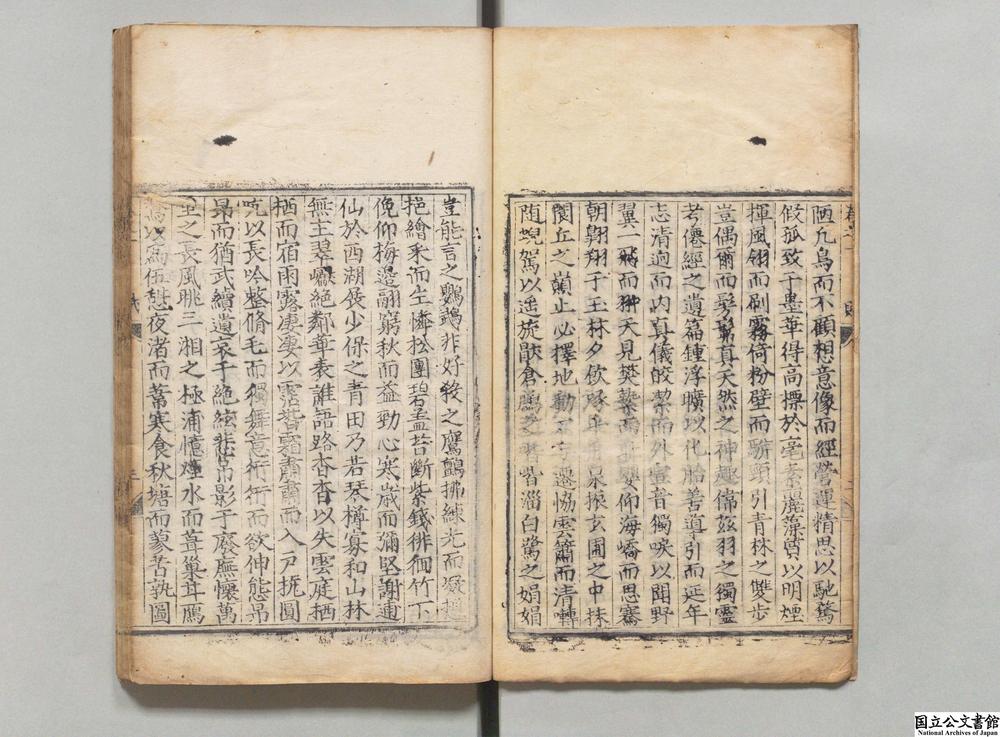 陋凢鳥而不顧想意像而經營運精思以馳騖
假孤致于墨華得高標於毫素麗藻質以明煙
揮風翎而刷霧倚粉壁而駢頸引青林之雙步
豈偶爾而髣髴真天然之神趣偉茲羽之獨靈
考僊經之遺篇鍾浮曠以化胎善導引而延年
志清逈而内真儀皎潔而外宣音獨唳以聞野
翼一飛而翀天見樊籠而仰海嶠而思騫
朝翺翔于玉林夕飲泉振玄圃之中抹
閬丘之巔止必擇地動不遷協雲簫而清囀
随蜺駕以遥旋歟倉之皆淄白鷺之娟娟
豈能言之鸚鵡非好殺之鷹鸇拂練光而凝
挹繪采而生憐松團碧盖苔斷紫錢徘徊竹下
俛仰梅邊翮窮秋而益勁心寒歳而彌堅謝逋
仙於西湖矦少保之青田乃若琴樽寡和山林
無主翠巘絶鄰華表誰語路杳杳以失雲庭栖
栖而宿雨露凄凄以霑階霜肅肅而入戸撫圓
吭以長吟整脩毛而獨舞意術術而欲伸態昂
昻而猶武續遺哀于絶絃悲吊影于廢廡懷萬
里之長風眺三湘之極浦憶煙水而葺巢耳鴈
以爲伍憇夜渚而蓄寒食秋塘而蒙苦執圖
国立公文書館
National Archives of Japan